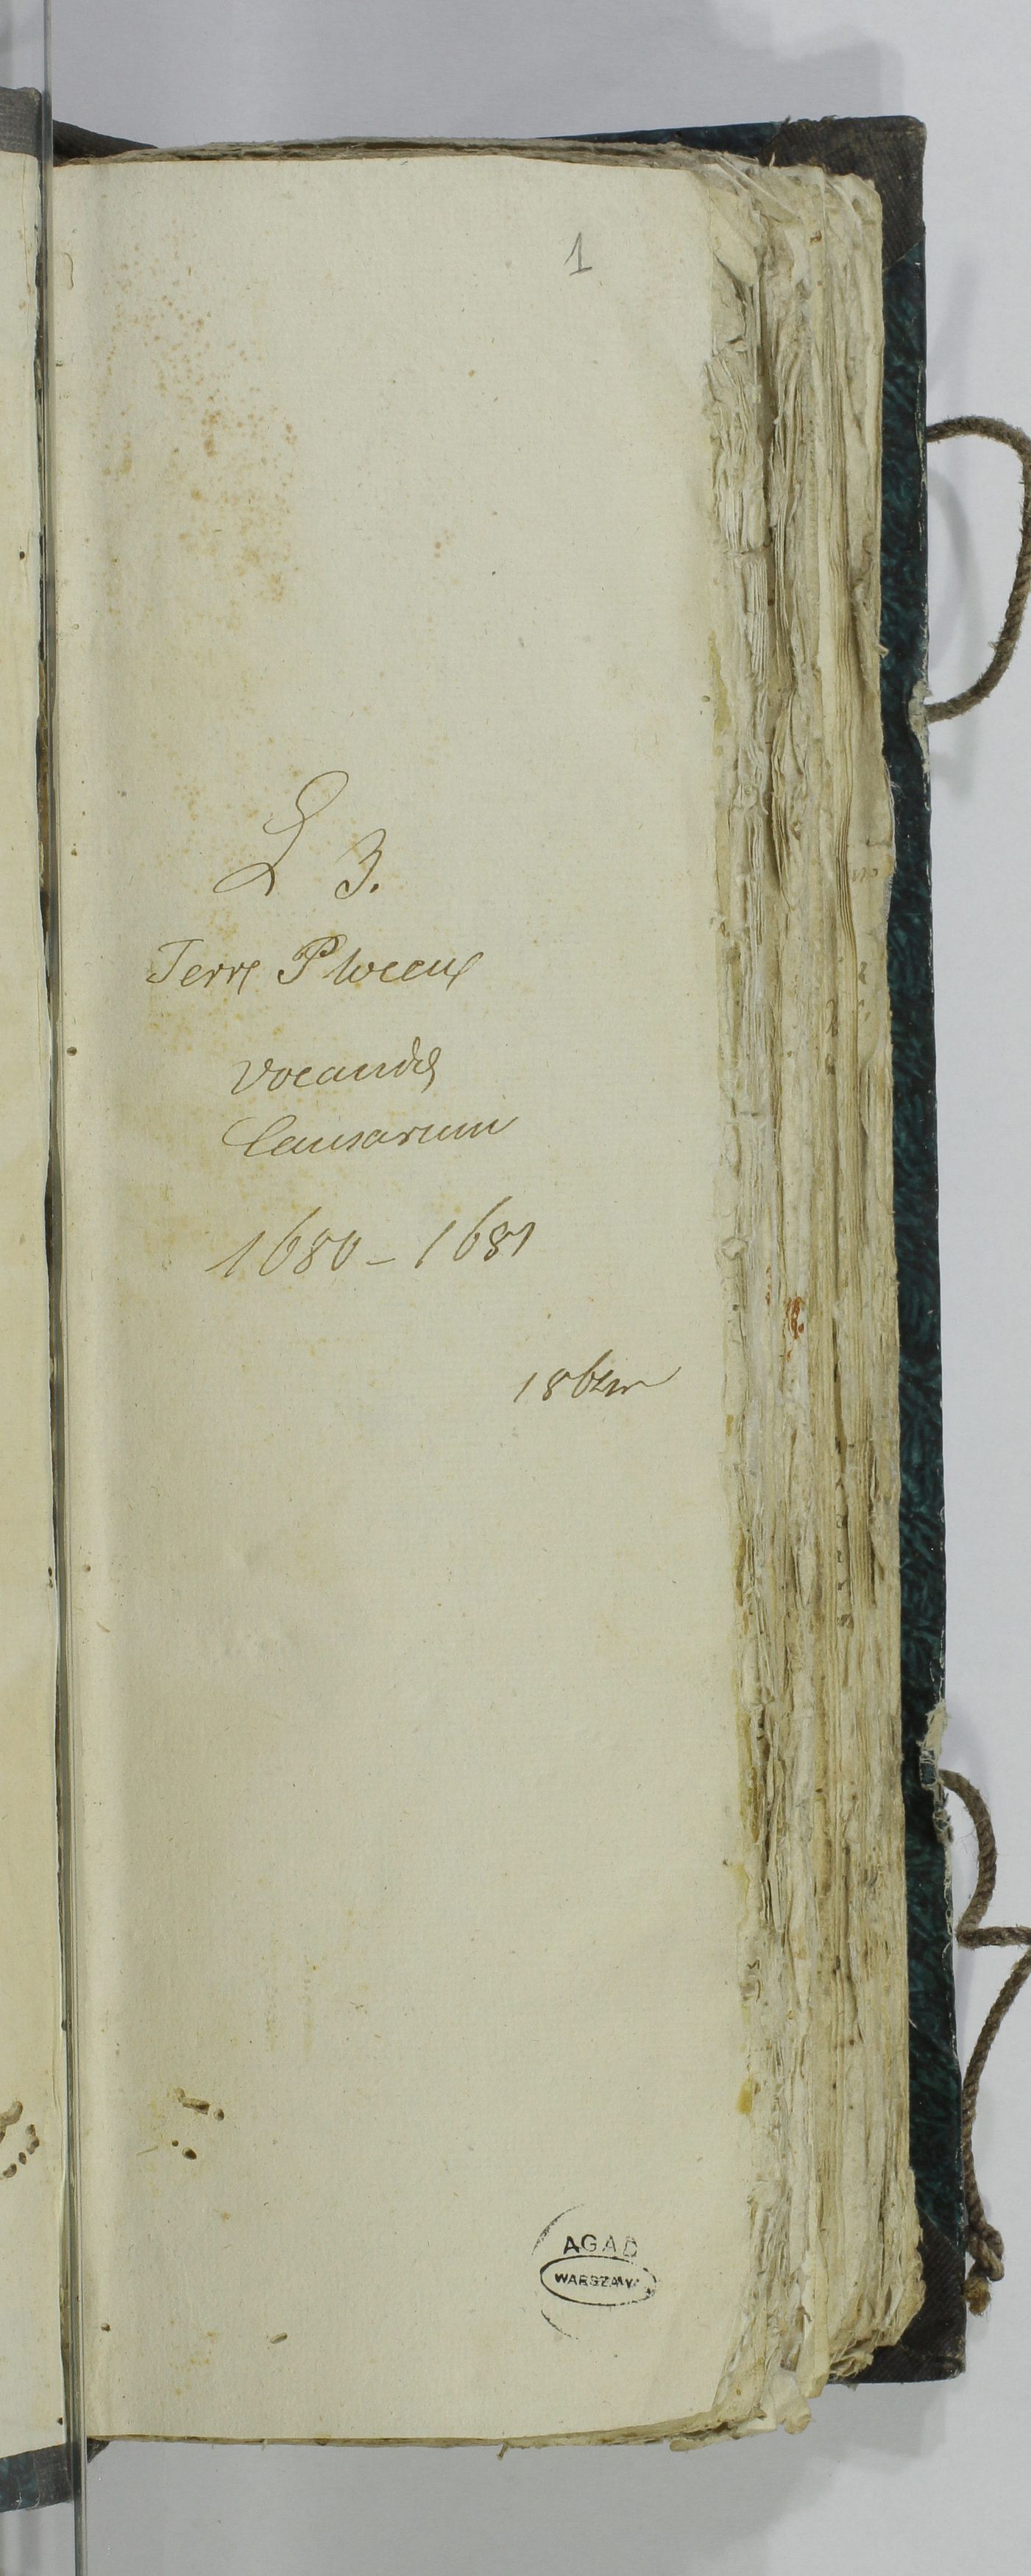 1
L 3.
Terrę Plocenę
Vocandę
Causarum
1680 - 1681
AGAD
WARSZAWA